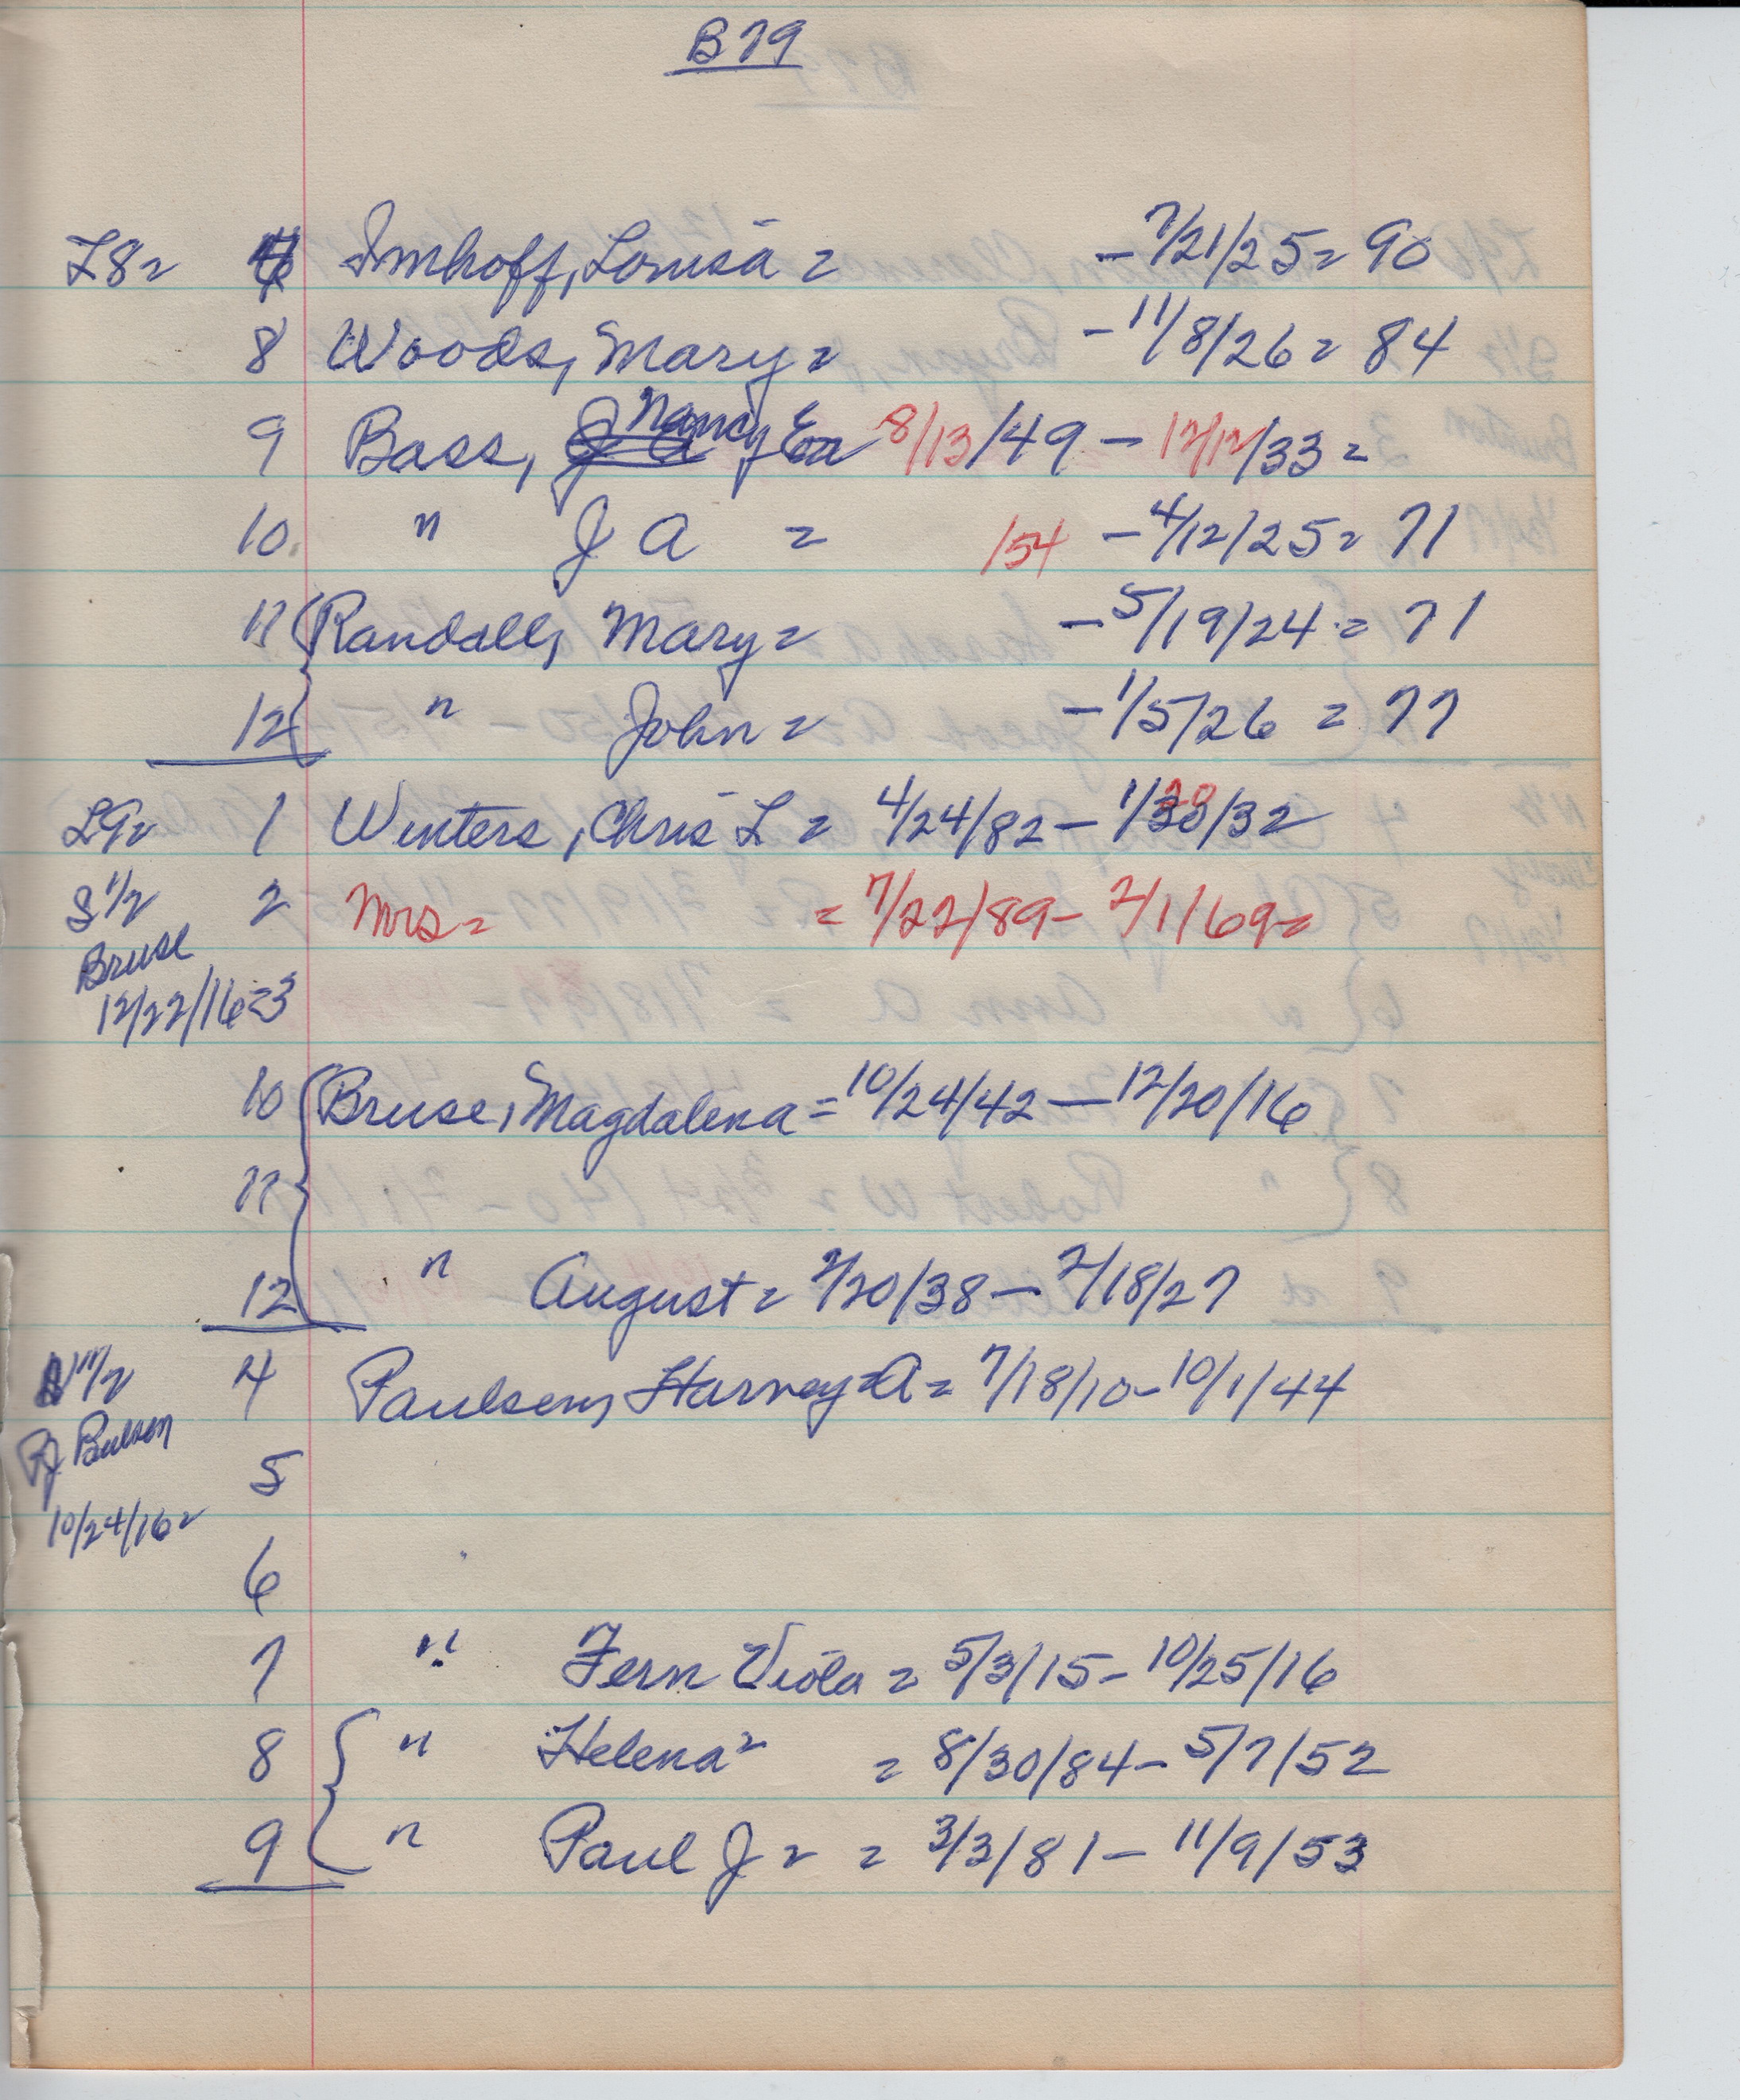 B79
L8= 6 Imhoff, Louisa = - 7/21/25 = 90
8 Woods, Mary = - 11/8/26 = 84
9 Bass, J A Nancy E 8/13/49 - 12/12/33 =
10 " J A = /54 - 4/12/25 = 71
11 Randall, Mary = - 5/19/24 = 71
12 " John = - 1/5/26 = 77
L9= 1 Winters, Chris L = 4/24/82 - 1/28/32
S 1/2 2 Mrs = = 7/22/89 - 2/1/69 =
Bruse
12/22/16 = 3
10 Bruse, Magdalena = 10/24/42 - 12/20/16
11
12 " August = 2/20/38 - 2/18/27
N 1/2 4 Paulsen, Harvey A = 7/18/10 - 10/1/44
PJ Paulsen
5
10/24/16 =
6
7 " Fern Viola = 5/3/15 - 10/25/16
8 " Helena = = 8/30/84 - 5/7/52
9 " Paul J = = 3/3/81 - 11/9/53